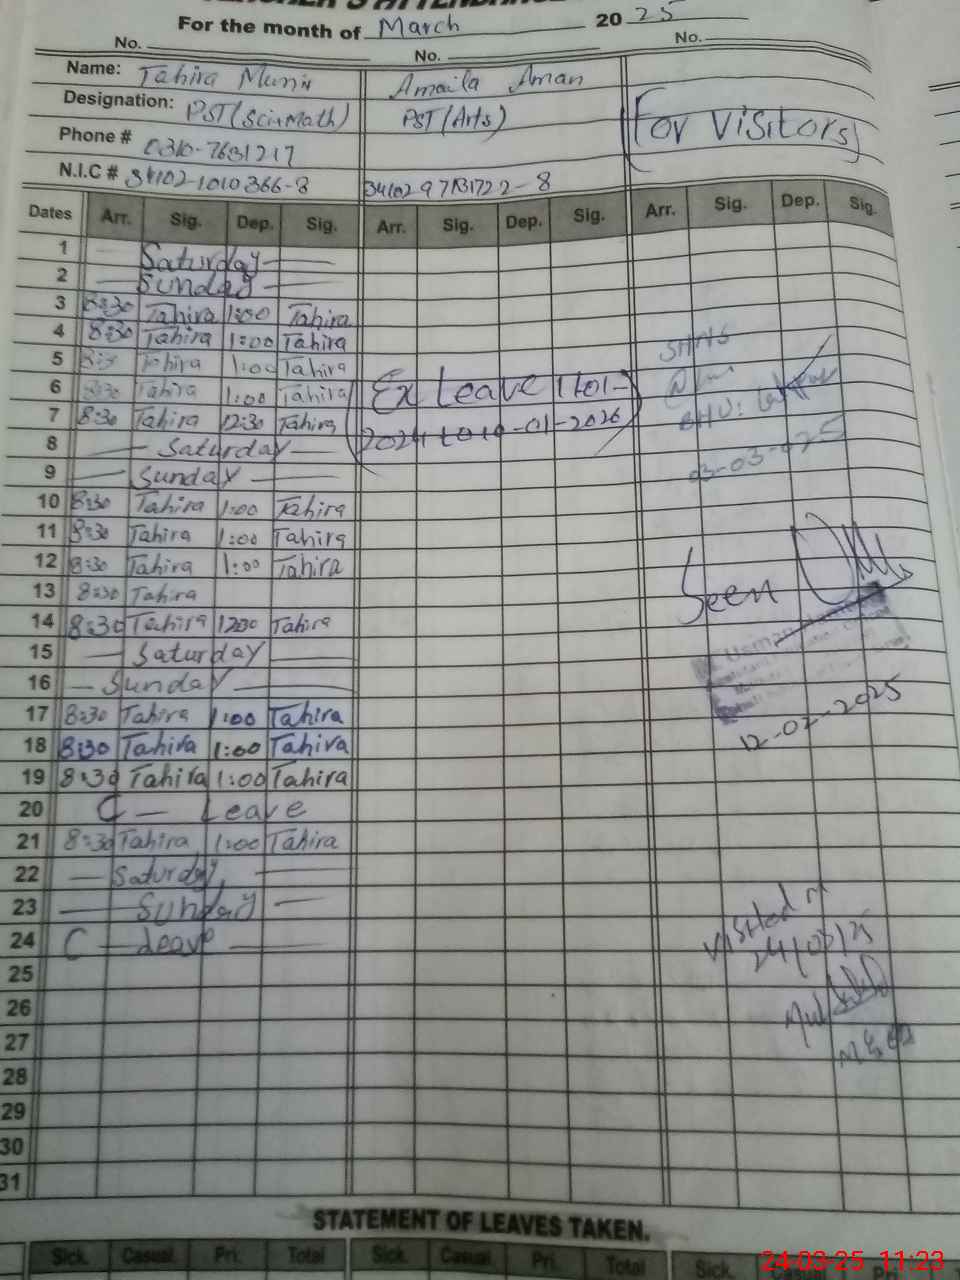 For the month of March 2025
No. No. No.
Name: Tahira Munir Amaila Aman
Designation: PST(Sci-Math) PST(Arts) For Visitors
Phone # 0310-7631217
N.I.C # 34102-1010366-8
Dates Arr. Sig. Dep. Sig. Arr. Sig. Dep. Sig. Arr. Sig. Dep. Sig.
1 Saturday
2 Sunday
3 8:30 Tahira 1:00 Tahira
4 8:30 Tahira 1:00 Tahira
5 8:30 Tahira 1:00 Tahira
6 8:30 Tahira 1:00 Tahira Ex Leave
7 8:30 Tahira 12:30 Tahira
8 Saturday
9 Sunday 03-03-025
10 8:30 Tahira 1:00 Tahira
11 8:30 Tahira 1:00 Tahira
12 8:30 Tahira 1:00 Tahira
13 8:30 Tahira Seen
14 8:30 Tahira 1230 Tahira
15 Saturday Usman
16 Sunday
17 8:30 Tahira 1:00 Tahira 12-02-2025
18 8:30 Tahira 1:00 Tahira
19 8:30 Tahira 1:00 Tahira
20 C - Leave
21 8:30 Tahira 1:00 Tahira
22 Saturday
23 Sunday Visited
24 C - Leave 24/03/25
25
26
27
28
29
30
31
STATEMENT OF LEAVES TAKEN.
Sick. Casual Pri. Total Sick. Casual Pri. Total Sick.
24-03-25 11:23